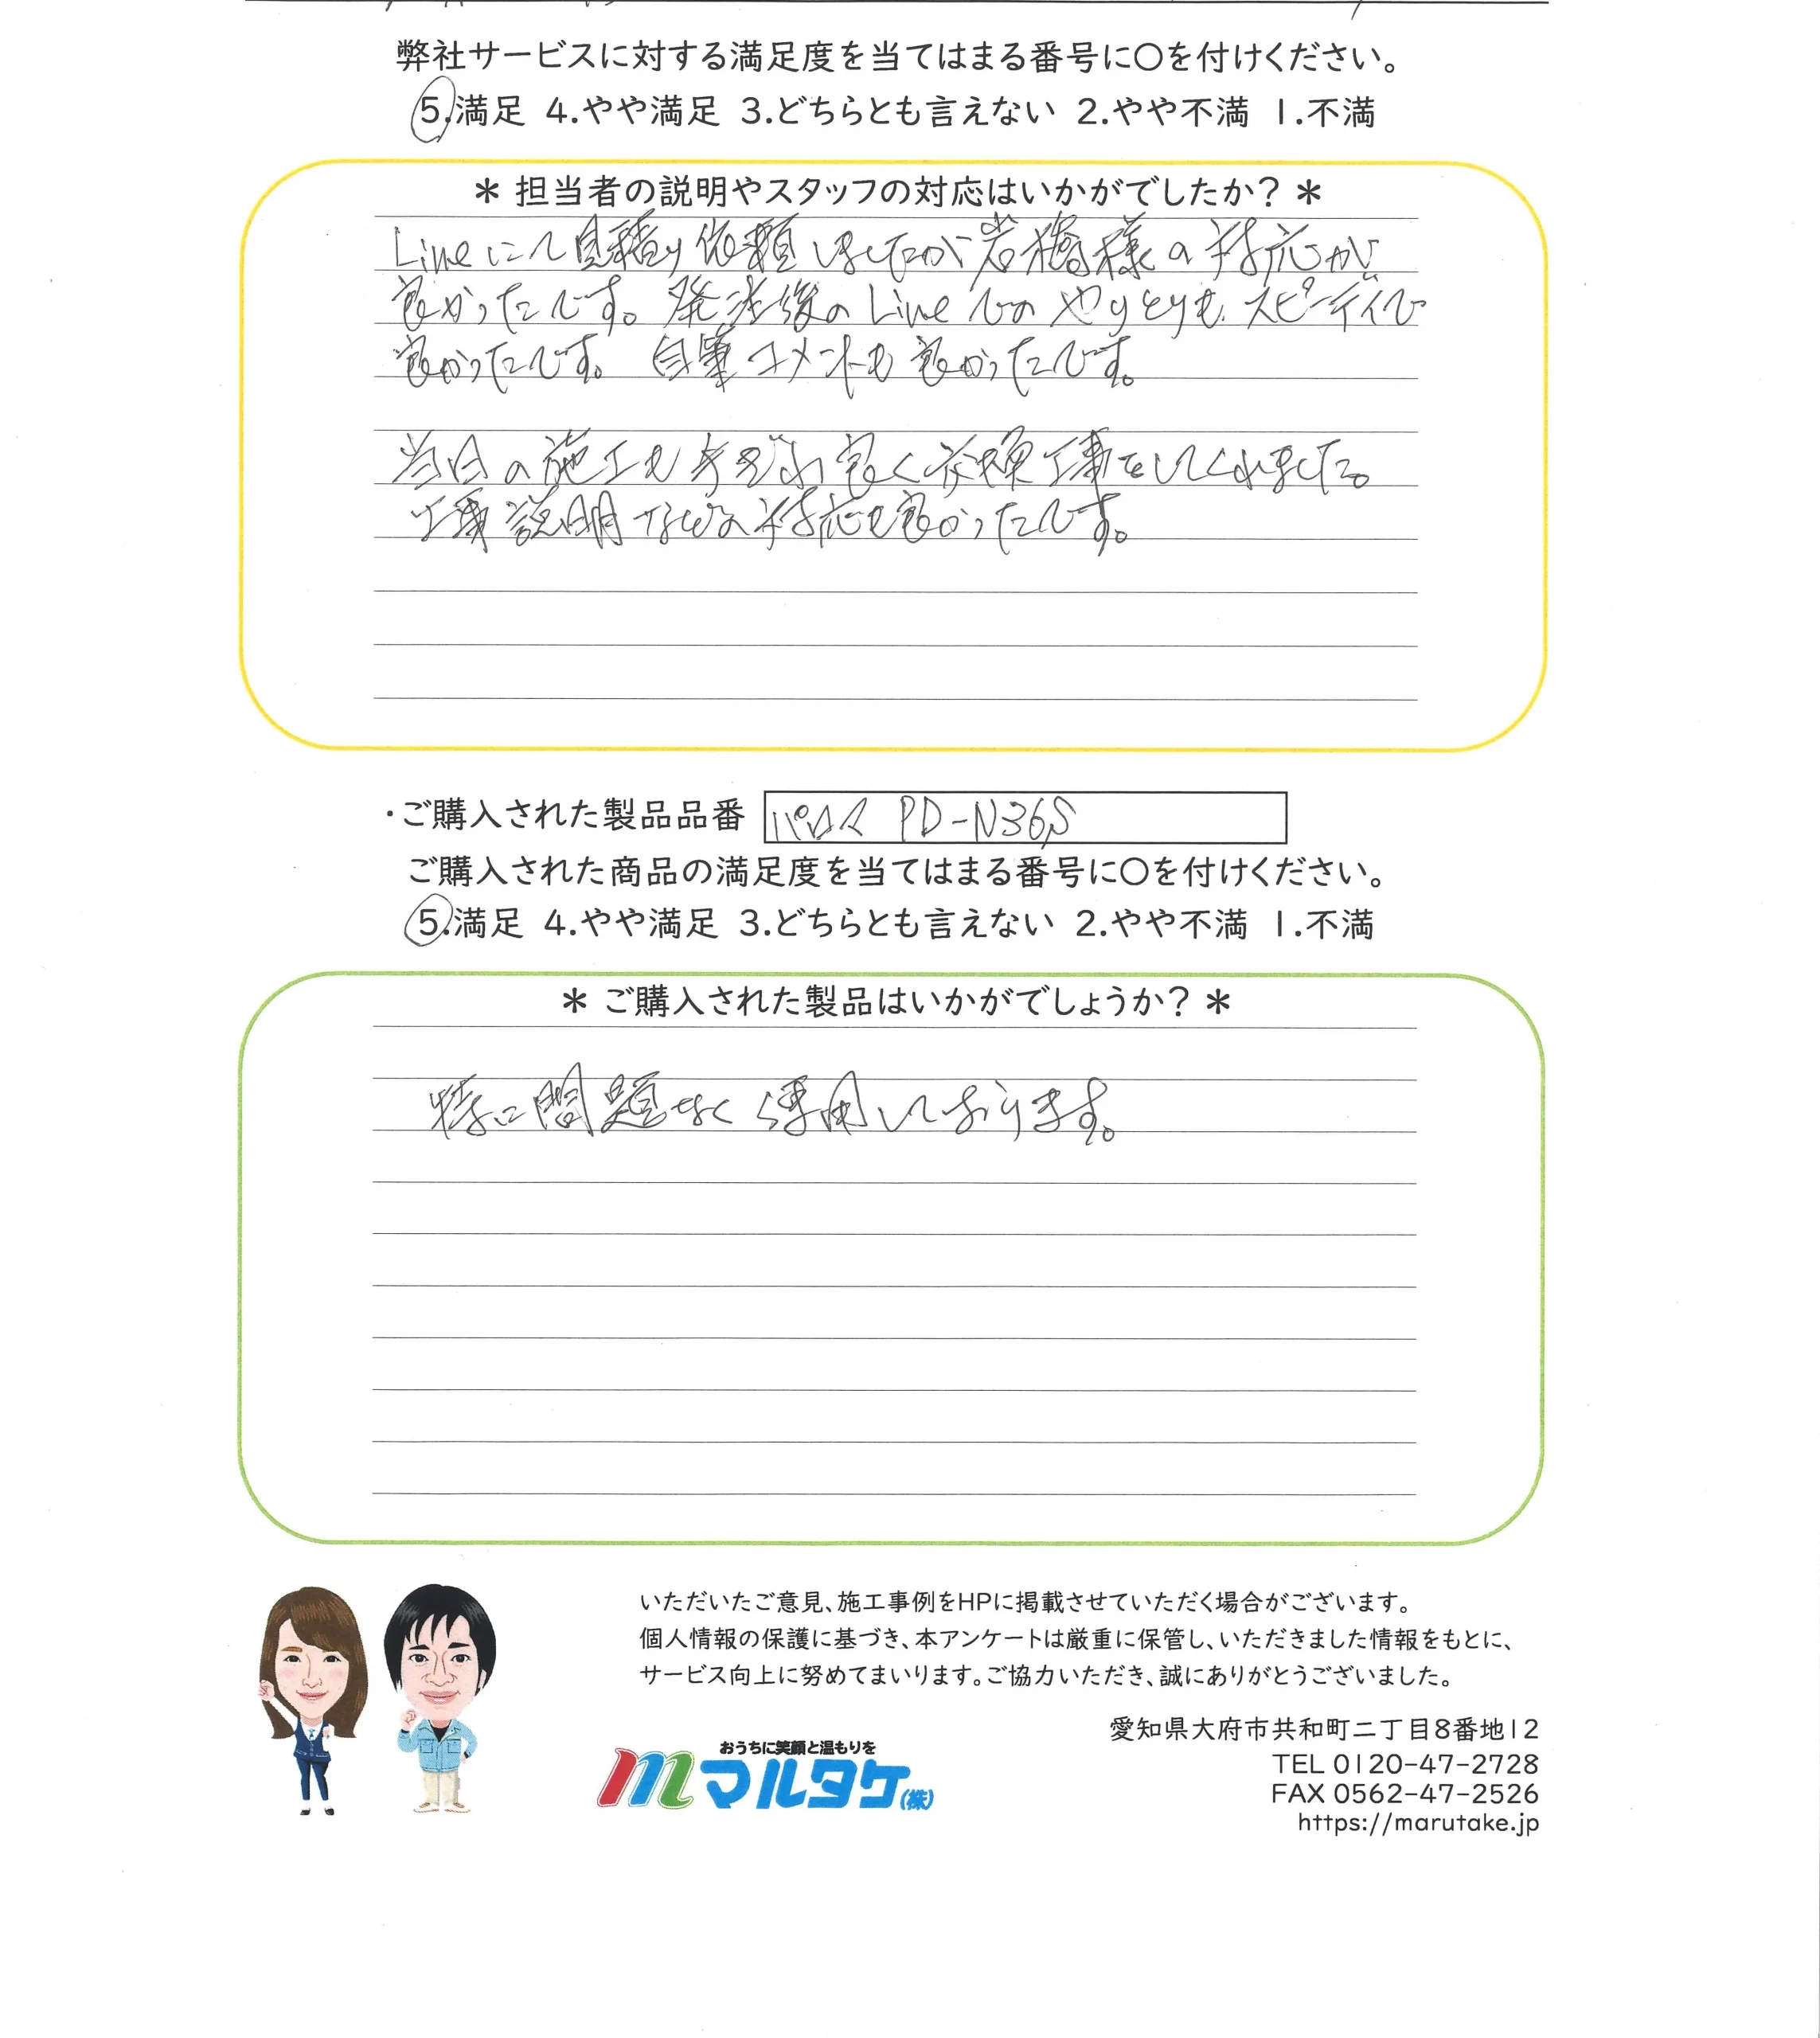 弊社サービスに対する満足度を当てはまる番号に〇を付けください。
5.満足 4.やや満足 3.どちらとも言えない 2.やや不満 1.不満
＊ 担当者の説明やスタッフの対応はいかがでしたか？ ＊
Lineにて見積り依頼しましたが岩橋様の対応が
良かったです。発注後のLineでのやりとりも、スピーディで
良かったです。自筆コメントも良かったです。
当日の施工も手ぎわ良く 工事をしてくれました。
工事説明などの対応も良かったです。
・ご購入された製品品番 パロマ PD-N36S
ご購入された商品の満足度を当てはまる番号に〇を付けください。
5.満足 4.やや満足 3.どちらとも言えない 2.やや不満 1.不満
＊ ご購入された製品はいかがでしょうか？ ＊
特に問題なく 用しております。
いただいたご意見、施工事例をHPに掲載させていただく場合がございます。
個人情報の保護に基づき、本アンケートは厳重に保管し、いただきました情報をもとに、
サービス向上に努めてまいります。ご協力いただき、誠にありがとうございました。
愛知県大府市共和町二丁目8番地12
TEL 0120-47-2728
FAX 0562-47-2526
https://marutake.jp
おうちに笑顔と温もりを
m マルタケ(株)